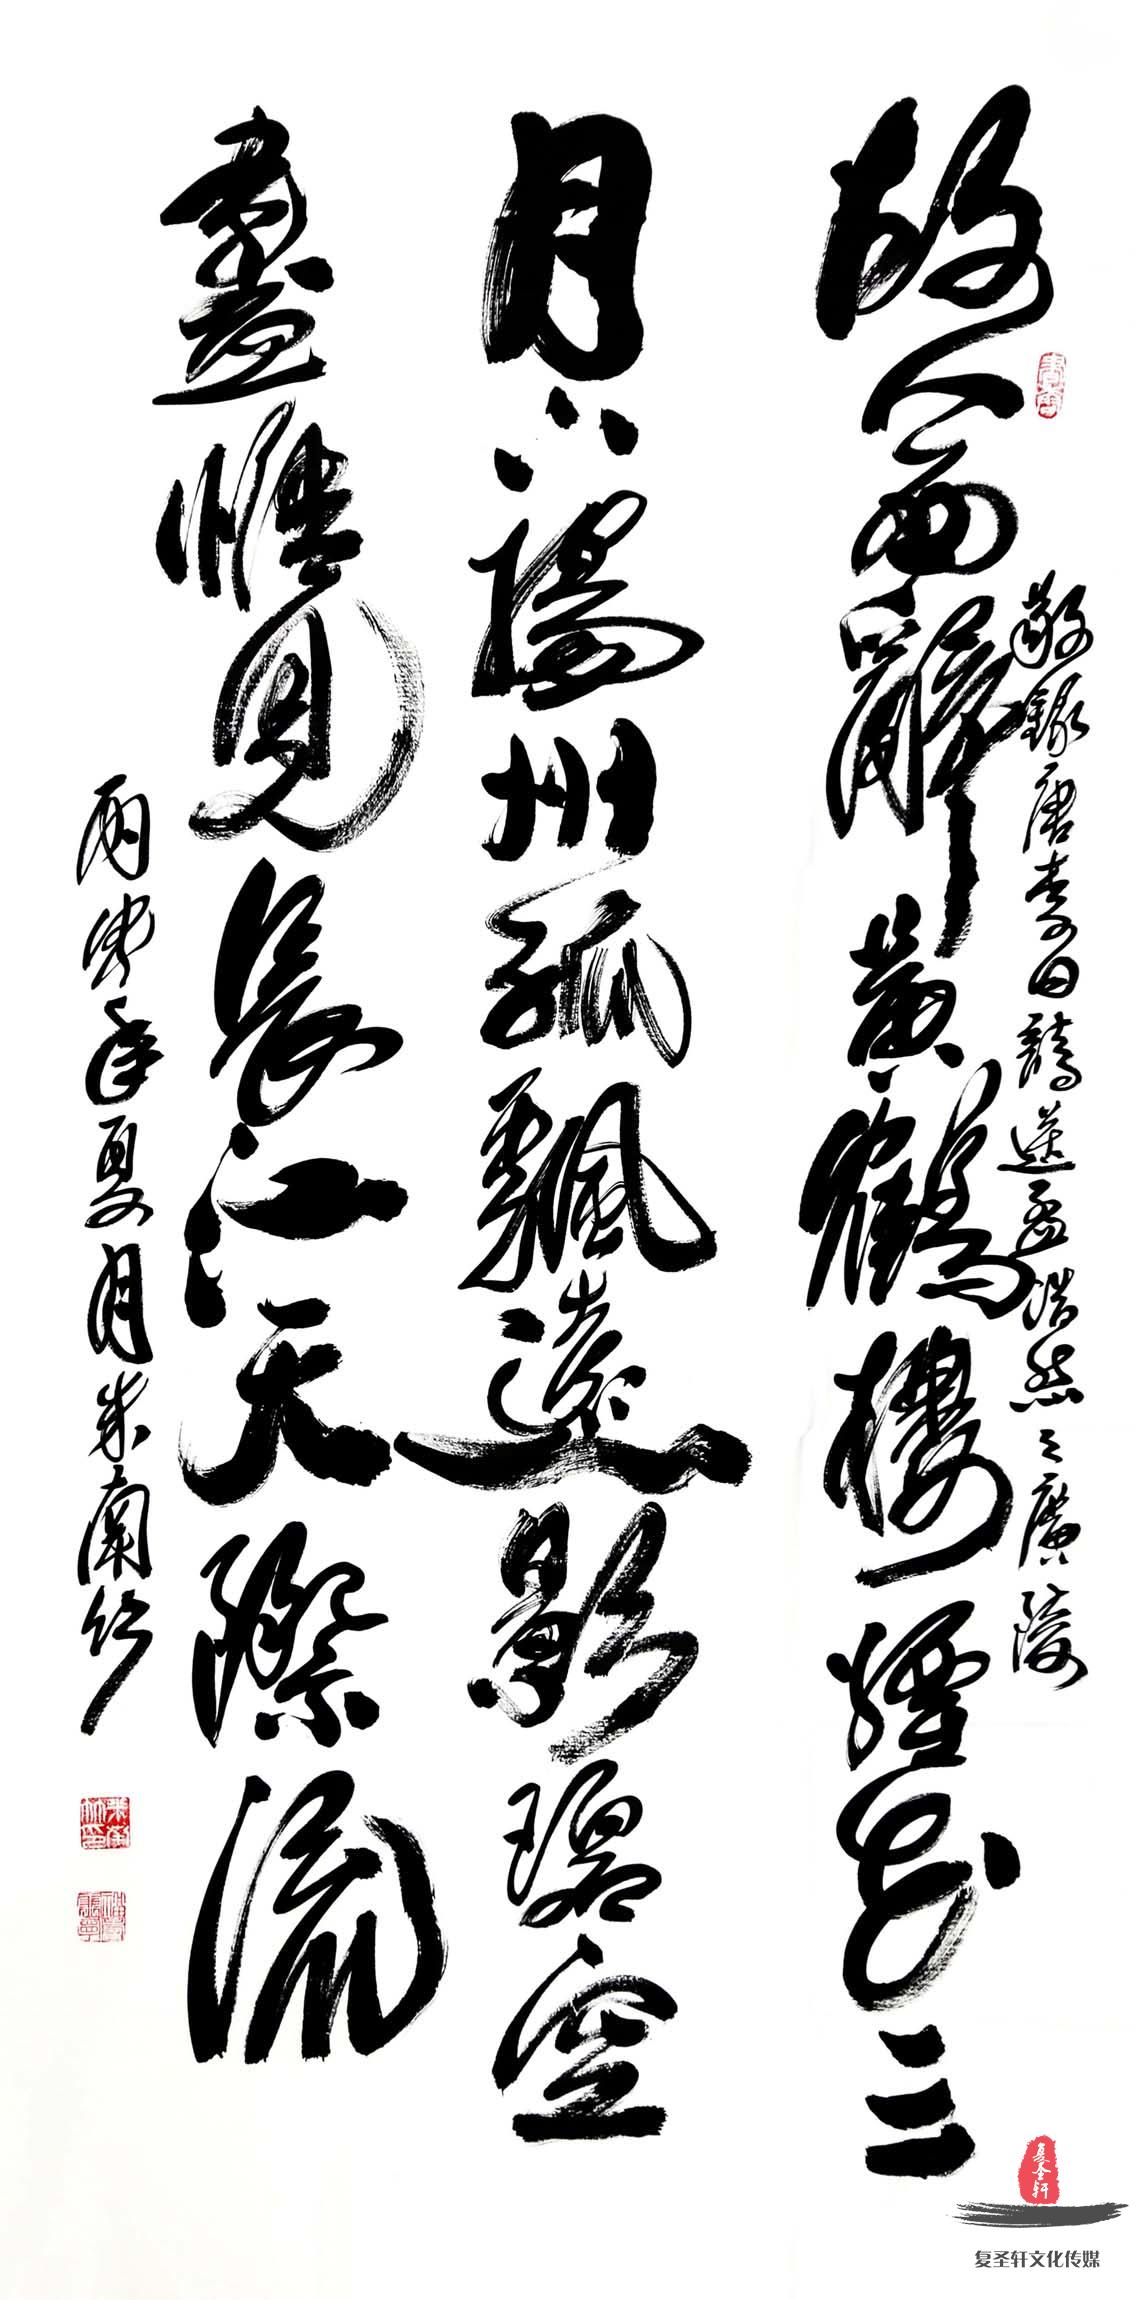 故人西辭黃鶴樓煙花三
月下揚州孤颿遠影碧空
盡惟見長江天際流
敬錄唐李白詩送孟浩然之廣陵
年夏月朱蘭竹
复圣轩
复圣轩文化传媒